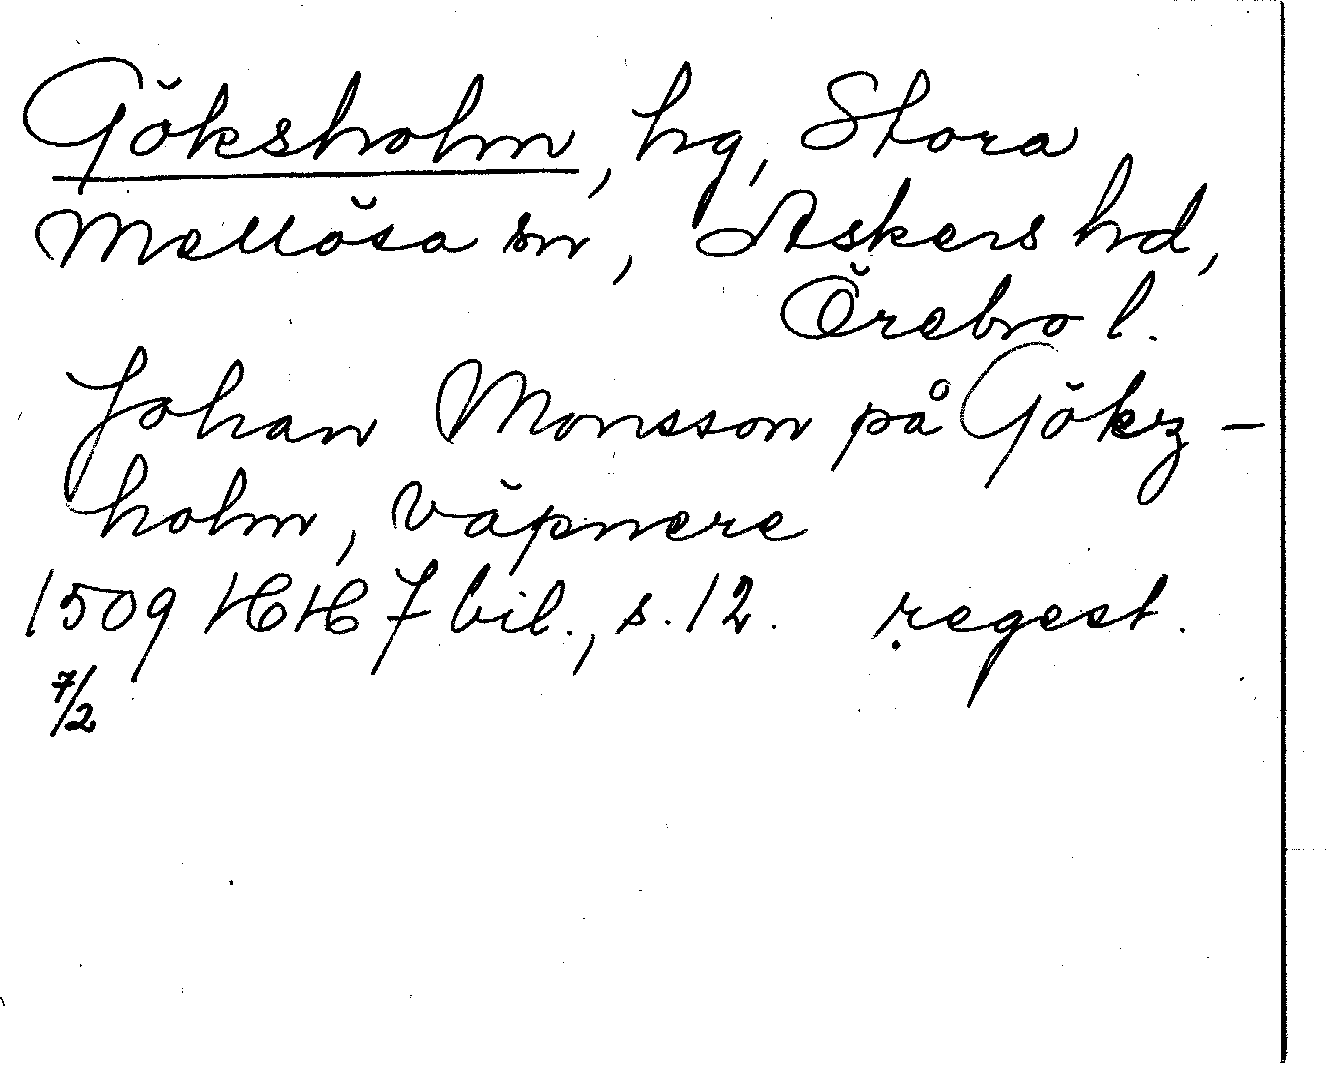 Göksholm, hg, Stora
Mellösa sn, Askers hd,
Örebro l.
Johan Monsson på Gökz-
holm, väpnere
1509 HH 7 bil., s. 12. regest.
7/2